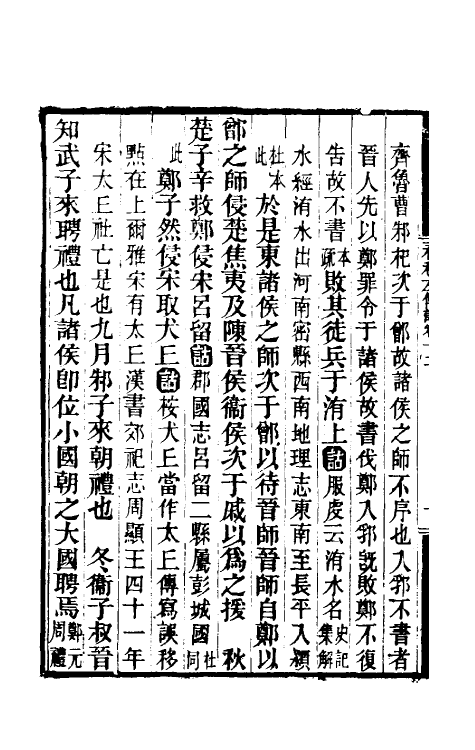 齊魯曹邾杞次于鄫故諸侯之師不序也入郛不書者
晉人先以鄭罪令于諸侯故書伐鄭入郛既敗鄭不復
告故不書本疏敗其徒兵于洧上詁服虔云洧水名史記集解
水經洧水出河南密縣西南地理志東南至長平入潁
杜本此於是東諸侯之師次于鄫以待晉師晉師自鄭以
鄫之師侵楚焦夷及陳晉侯衞侯次于戚以爲之援　秋
楚子辛救鄭侵宋呂留詁郡國志呂留二縣屬彭城國杜同
此鄭子然侵宋取犬丘詁桉犬丘當作太丘傳寫誤移
點在上爾雅宋有太丘漢書郊祀志周顯王四十一年
宋太丘社亡是也九月邾子來朝禮也　冬衞子叔晉
知武子來聘禮也凡諸侯卽位小國朝之大國聘焉鄭元周禮